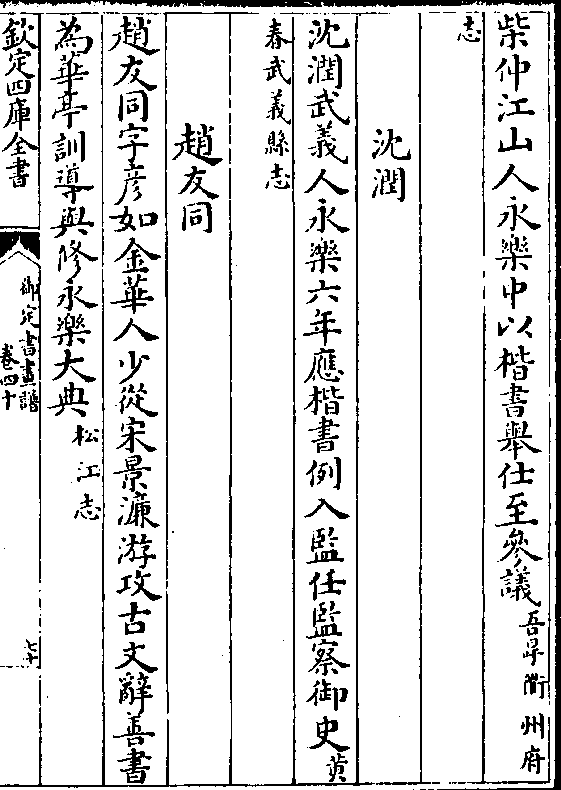 柴仲江山人永樂中以楷書舉仕至參議吾冔衢州府
志
沈潤
沈潤武義人永樂六年應楷書例入監任監察御史黄
春武義縣志
趙友同
趙友同字彦如金華人少從宋景濂游攻古文辭善書
為華亭訓導與修永樂大典松江志
欽定四庫全書
御定書畫譜
卷四十
七十